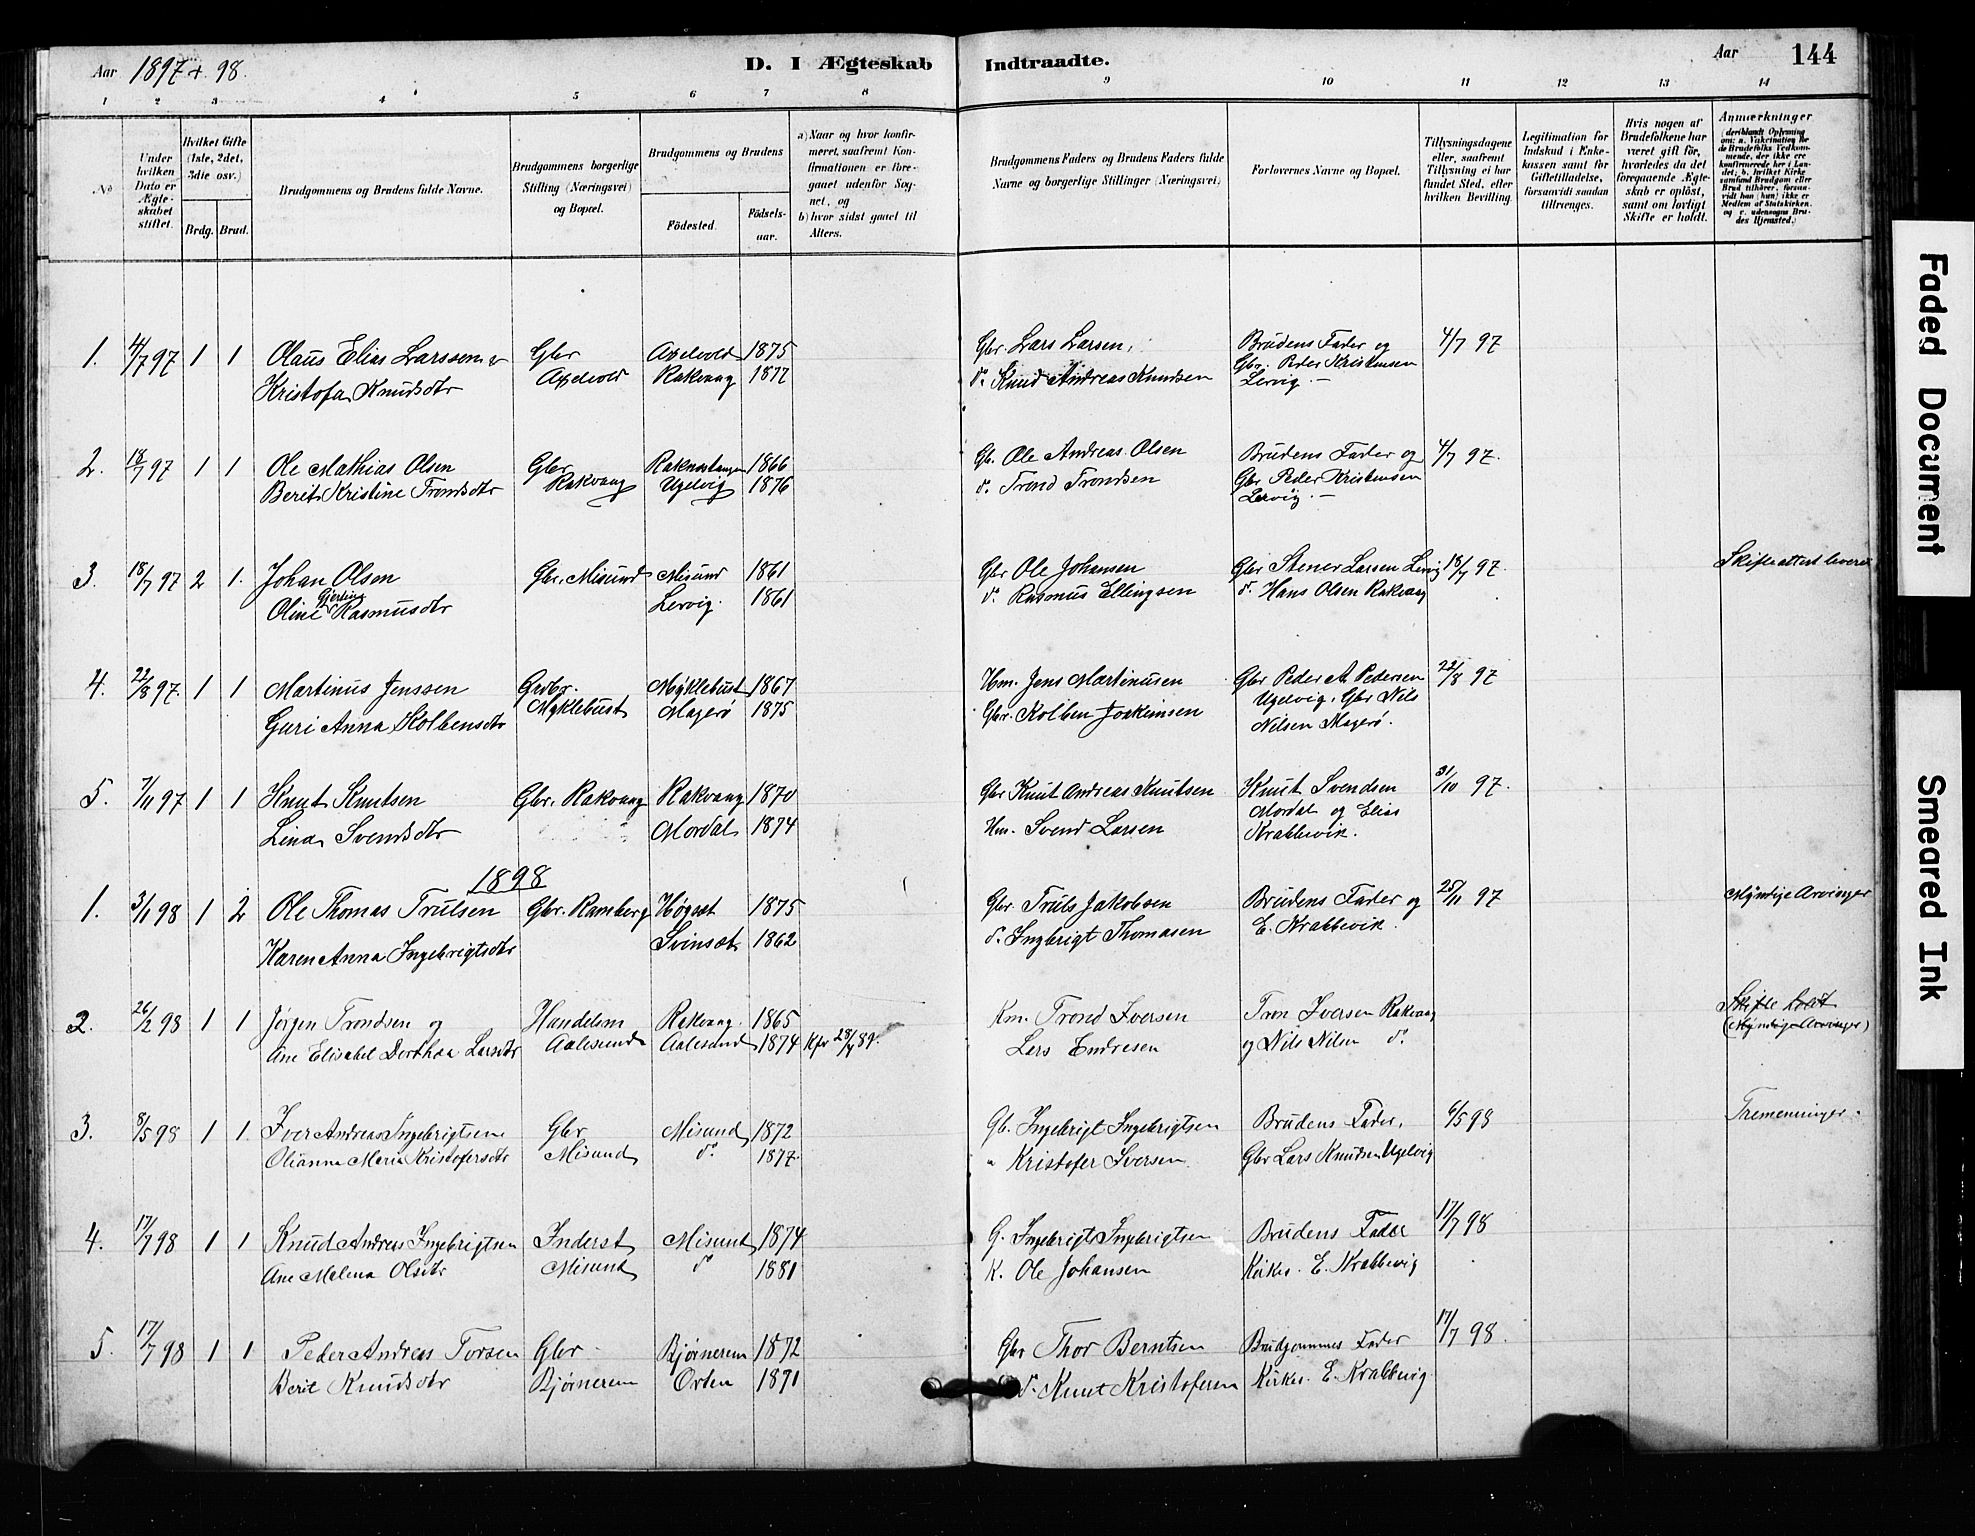 Aar 1897 + 98.
D. I Ægteskab Indtraadte.
Aar 144
1 2 3 4 5 6 7 8 9 10 11 12 13 14
No
Under hvilken Dato er Ægteskabet stiftet.
Hvilket Gifte (1ste, 2det, 3die osv.)
Brdg. Brud.
Brudgommens og Brudens fulde Navne.
Brudgommens borgerlige Stilling (Næringsvei) og Bopæl.
Brudgommens og Brudens
Födested.
Födsels-aar.
a) Naar og hvor konfirmeret, saafremt Konfirmationen er foregaaet udenfor Sognet, og
b) hvor sidst gaaet til Alters.
Brudgommens Faders og Brudens Faders fulde Navne og borgerlige Stillinger (Næringsvei)
Forlovernes Navne og Bopæl.
Tillysningsdagene eller, saafremt Tillysning ei har fundet Sted, efter hvilken Bevilling.
Legitimation for Indskud i Enkekassen samt for Giftetilladelse, forsaavidt saadan tiltrænges.
Hvis nogen af Brudefolkene har været gift för, hvorledes da det foregaaende Ægteskab er oplöst, samt om lovligt Skifte er holdt.
Anmærkninger
(deriblandt Oplysning om: a. Vakcination for de Brudefolks Vedkommende, der ikke ere konfirmerede her i Landet; b. hvilket Kirkesamfund Brudgom eller Brud tilhörer, forsaavidt han (hun) ikke er Medlem af Statskirken, og c. udensogns Brudes Hjemsted.)
1. 4/7 97 1 1 Olaus Elias Larssen Gbr 1875 Gbr. Lars Larsen, Brudens Fader og 4/7 97
Kristofa Knudsdtr Rakvaag 1877 do. Knud Andreas Knudsen Gbr. Peder Kristensen
Lervig.
2. 18/7 97 1 1 Ole Mathias Olsen Gbr 1866 Gb. Ole Andreas Olsen Brudens Fader og 4/7 97.
Berit Kristine Trondsdtr Rakvaag Ugelvig 1876 do. Trond Trondsen Gbr Peder Kristensen
Lervig.
3. 18/7 97 2 1. Johan Olsen Gbr. Misund Misund 1861 Gbr Ole Johansen Gbr Stener Larsen Lervig 18/7 97. Skifteattest
Gjertine
Oline Rasmusdtr Lervig. 1861 do. Rasmus Ellingsen do. Hans Olsen Rakvaag
4. 22/8 97. 1 1 Martinus Jenssen Myklebust 1867 Hm. Jens Martinusen Gbr Peder A Pedersen 22/8 97
Guri Anna Kolbensdtr Myklebust Magerö 1875 Gbr. Kolben Joakimsen Ugelvig, Gbr Nils
Nilsen Magerö.
5. 7/11 97 1 1 Knut Knutsen Gbr. Rakvaag Rakvaag 1870 Gbr Knut Andreas Knutsen Knut Svendsen 31/10 97.
Lina Svendsdtr Mordal 1874 Hm. Svend Larsen Mordal og Elias
Krabbevik.
1898
1. 3/1 98 1 2 Ole Thomas Trulsen Gbr. Ramberg Högset 1875 Gbr. Truls Jakobsen Brudens Fader og 25/11 97 Myndige Arvinger
Karen Anna Ingebrigtsdtr Svinsæt 1862 do. Ingbrigt Thomasen E. Krabbevik.
2. 26/2 98 1 1 Jörgen Trondsen og Handelsm Rakvaag 1865 Km. Trond Iversen Tron Iversen Rakvaag Skifte holdt
Ane Elisabet Dorthea Larsdtr Aalesund Aalesund 1874 Kfr 28/4 89. Lars Endresen og Nils Nilsen do. (Myndige Arvinger)
3. 8/5 98 1 1. Iver Andreas Ingebrigtsen Gbr Misund 1872 Gb. Ingebrigt Ingebrigtsen Brudens Fader, 6/5 98 Tremenninger.
Olianna Maria Kristofersdtr Misund do 1877. " Kristofer Iversen Gbr Lars Knudsen Ugelvig
4. 17/7 98 1 1 Knud Andreas Ingebrigtsen Inderst Misund 1874 G. Ingebrigt Ingebrigtsen Brudens Fader 17/7 98
Ane Melena Olsdtr Misund do 1881 K. Ole Johansen Kirkes. E. Krabbevig
5. 17/7 98 1 1 Peder Andreas Torsen Gbr Björnerem 1872 Gbr Thor Berntsen Brudgommens Fader 17/7 98.
Berit Knudsdtr Björnerem Orten 1871 do. Knut Kristofersen Kirkes. E. Krabbevig
Faded Document
Smeared Ink